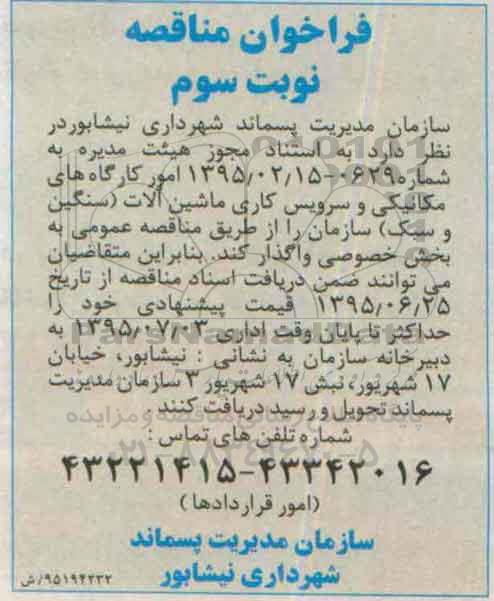 فراخوان مناقصه
نوبت سوم
سازمان مدیریت پسماند شهرداری نیشابوردر
نظر دارد به استناد مجوز هیئت مدیره به
شماره۰۶۲۹-۱۳۹۵/۰۲/۱۵ امور کارگاه های
مکانیکی و سرویس کاری ماشین آلات (سنگین
و سبک) سازمان را از طریق مناقصه عمومی به
بخش خصوصی واگذار کند. بنابراین متقاضیان
می توانند ضمن دریافت اسناد مناقصه از تاریخ
۱۳۹۵/۰۶/۲۵ قیمت پیشنهادی خود را
حداکثر تا پایان وقت اداری ۱۳۹۵/۰۷/۰۳ به
دبیرخانه سازمان به نشانی : نیشابور، خیابان
۱۷ شهریور، نبش ۱۷ شهریور ۳ سازمان مدیریت
پسماند تحویل و رسید دریافت کنند
شماره تلفن های تماس :
۴۳۲۲۱۴۱۵-۴۳۳۴۲۰۱۶
(امور قراردادها )
سازمان مدیریت پسماند
شهرداری نیشابور
۹۵۱۹۴۲۳۲/ش